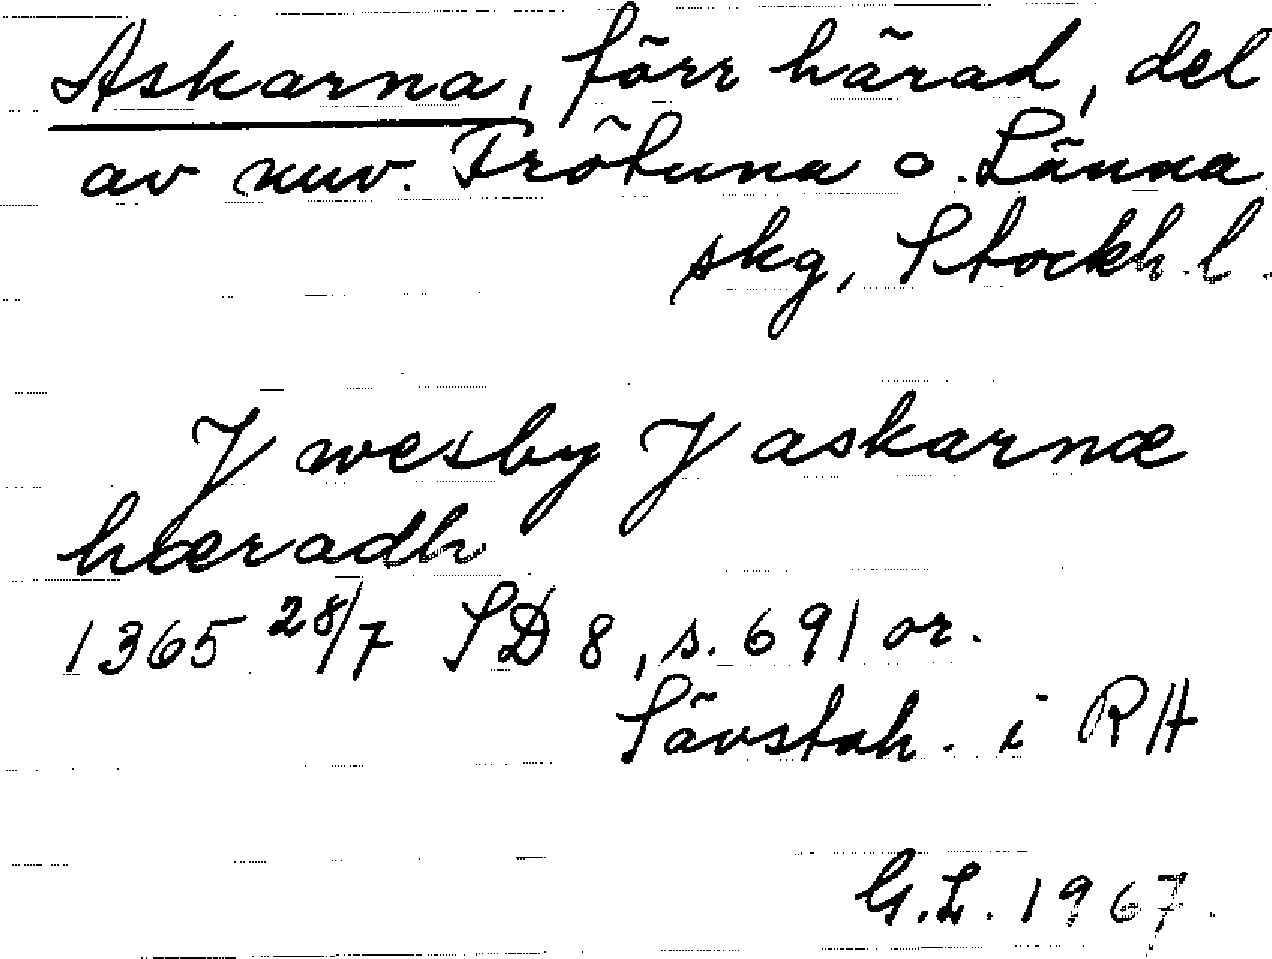 Askarna, förr härad, del
av nuv. Frötuna o. Länna
skg, Stockh. l.
J wesby J askarnæ
hæradh
1365 28/7 SD 8, s. 691 or.
Sävstah. i RA
G.L. 1967.